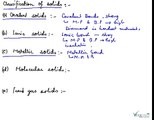 Classification of solids:-
(a) Covalent solids :- Covalent Bonds - strong
M.P & B.P - high
Diamond is hardest material.
(b) Ionic solids :- Ionic Bonds - strong
M.P & B.P - high
(c) Metallic solids :- Metallic bond
(d) Molecular solids -
(e) Inert gas solids :-